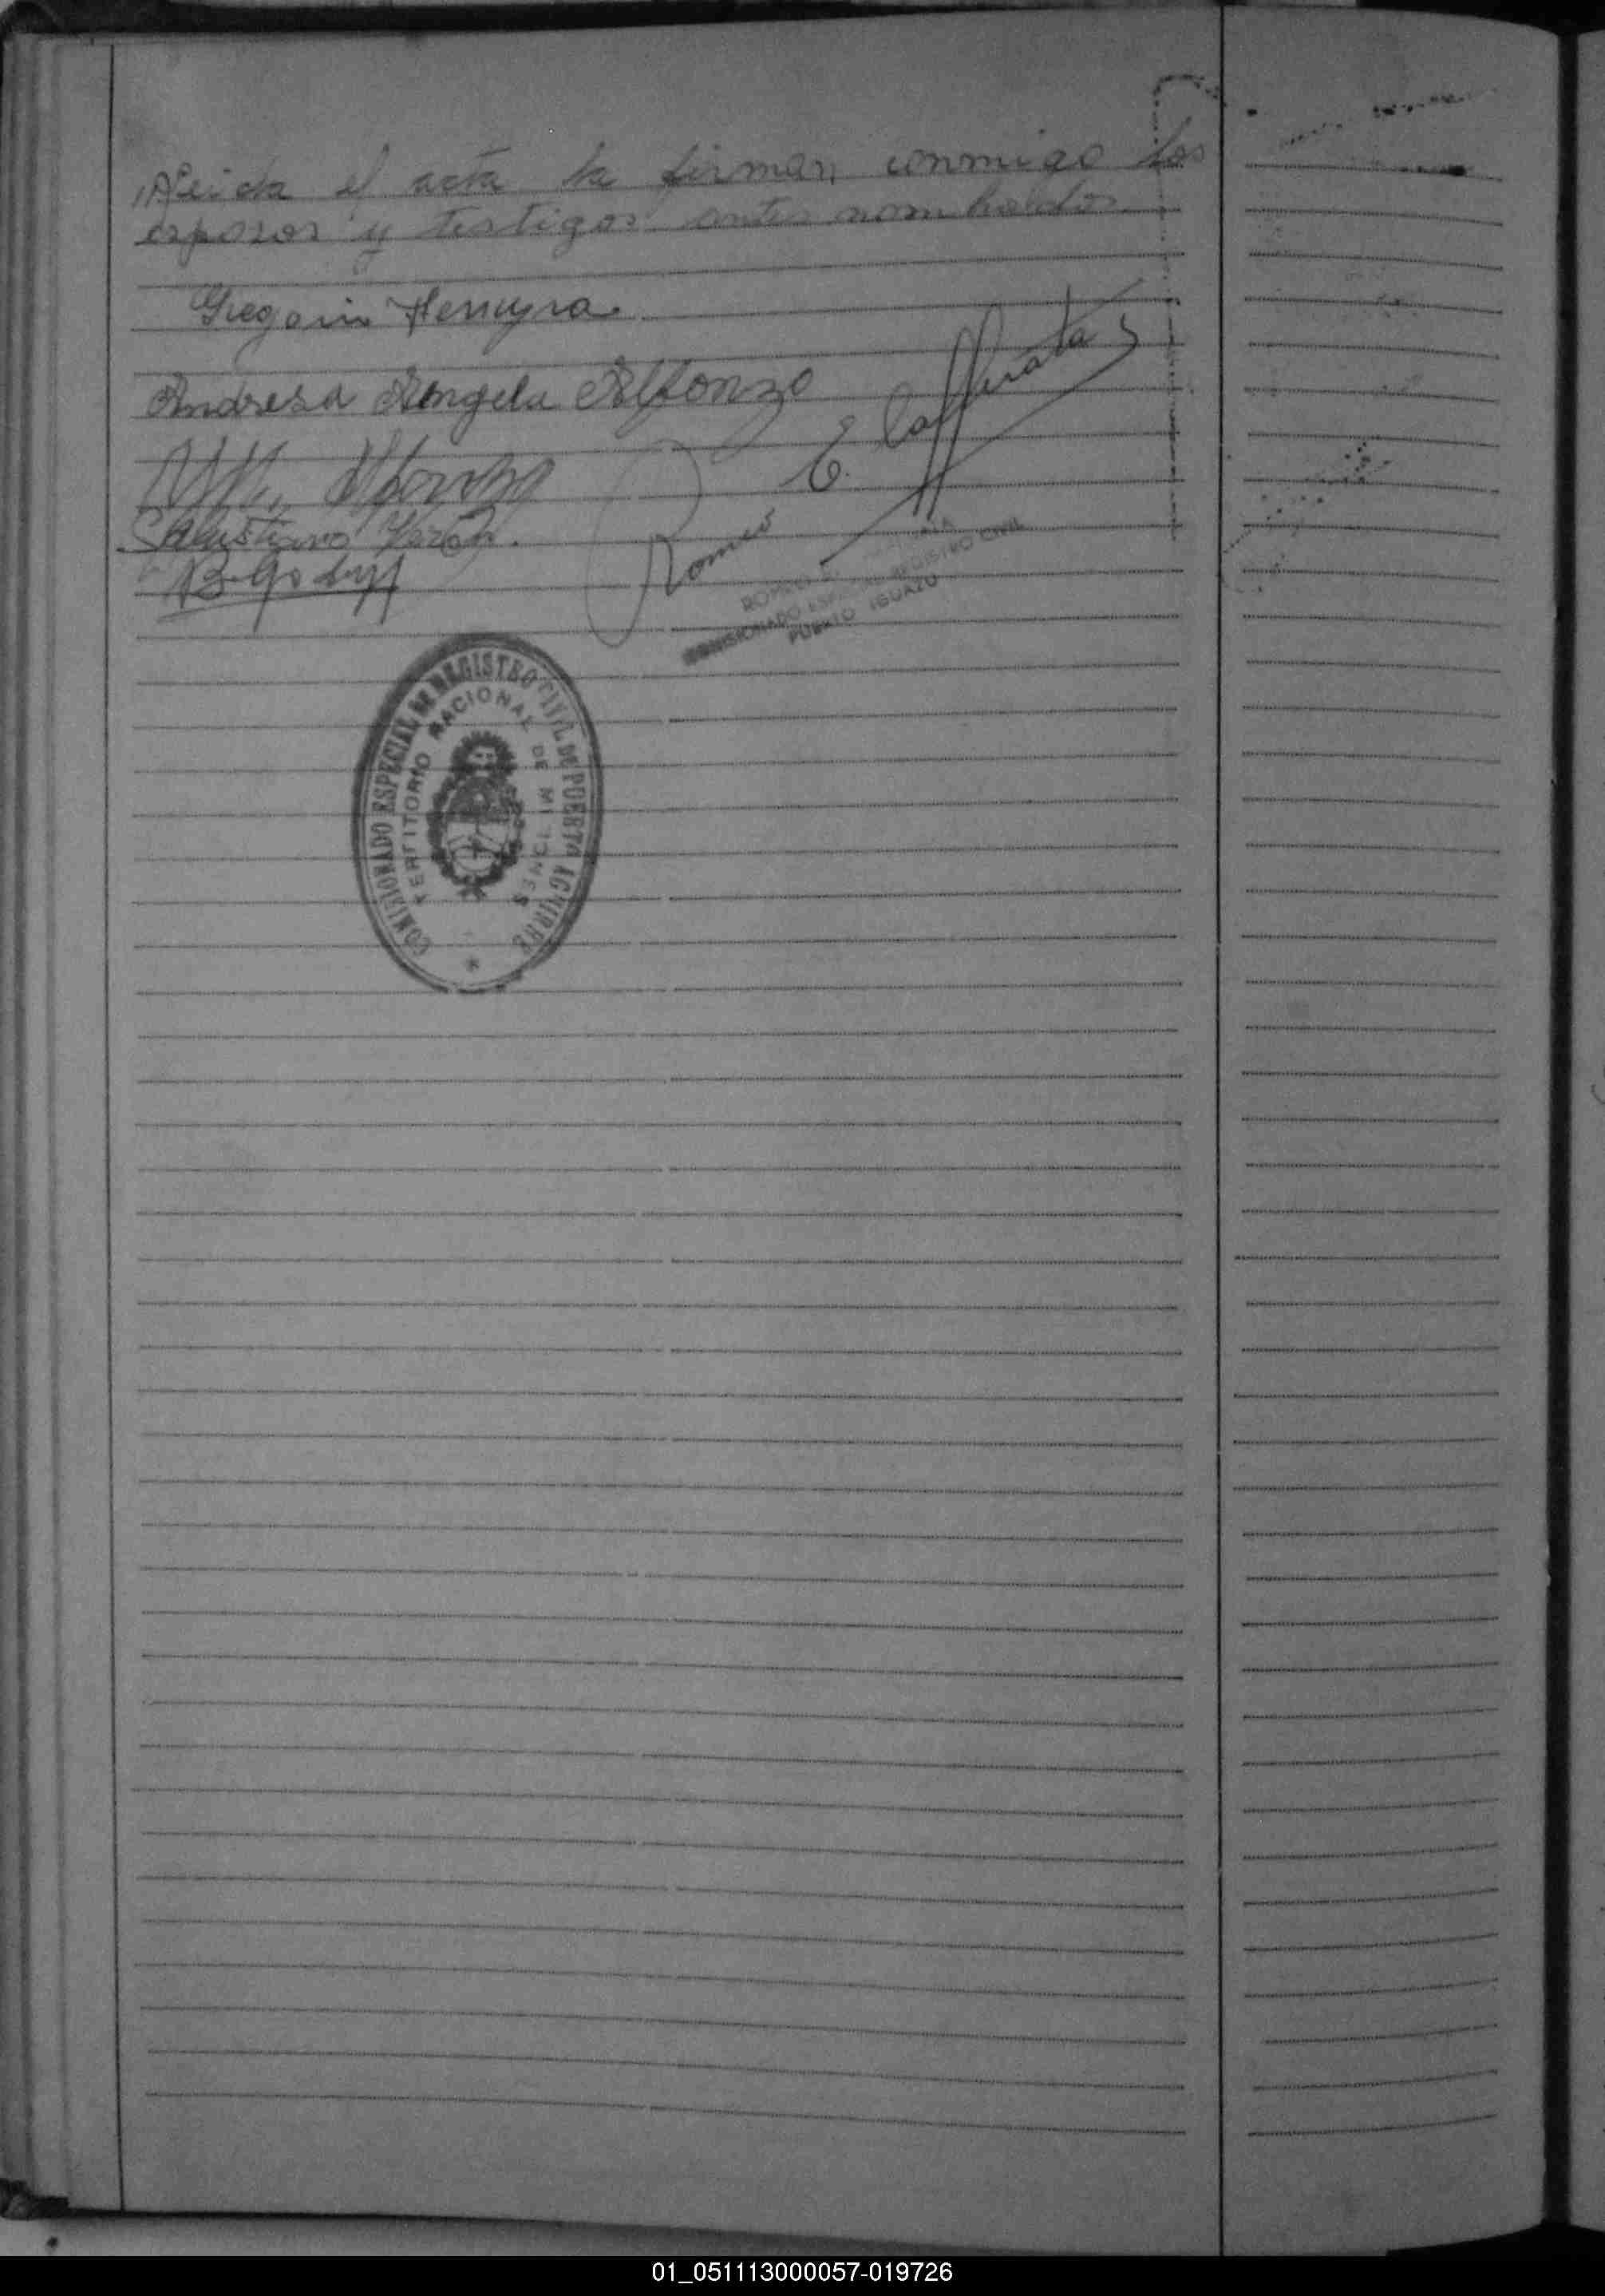 Leida el acta la firman conmigo los
esposos y testigos antes nombrados.
Gregorio Ferreyra.
Andresa Angela Alfonzo
Alfonzo
Salustiano
Romeo E. Laffurata
COMISIONADO ESPECIAL REGISTRO CIVIL
PUERTO IGUAZU
COMISIONADO ESPECIAL DE REGISTRO CIVIL DE PUERTO AGUIRRE
TERRITORIO NACIONAL DE MISIONES
01_051113000057-019726